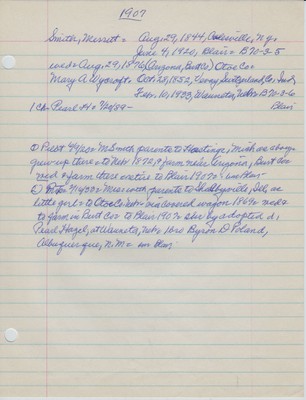 1907
Smith, Merritt = Aug. 29, 1844, Oakesville, N.Y.=
June 4, 1920, Blair = B70-3-5
wed = Aug. 29, 1876 (Arizona, Burt Co) Otoe Co=
Mary A. Wycroft = Oct. 28, 1852, Vevay, Switzerland, Co, Ind,
Feb. 10, 1933, Wauneta, Nebr B70-3-6
1 ch = Pearl H= Blair
parents to Hastings, Mich as above
grew up there = to Nebr 1872 farm near Arizona, Burt Co=
wed & farm there retire to Blair 1907= bur Blair
parents to Shelbyville, Ill as
little girl = to Otoe Co Nebr via covered wagon 1869= wed &
to farm in Burt Co = to Blair 1907= sur by adopted d,
Pearl Hazel, at Wauneta, Nebr 1 bro Byron D Poland,
Albuquerque, N.M = bur Blair